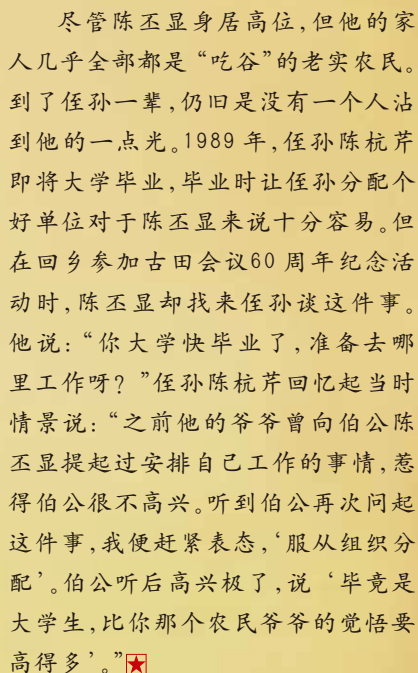 尽管陈丕显身居高位，但他的家
人几乎全部都是“吃谷”的老实农民。
到了侄孙一辈，仍旧是没有一个人沾
到他的一点光。1989 年，侄孙陈杭芹
即将大学毕业，毕业时让侄孙分配个
好单位对于陈丕显来说十分容易。但
在回乡参加古田会议60 周年纪念活
动时，陈丕显却找来侄孙谈这件事。
他说：“你大学快毕业了，准备去哪
里工作呀？”侄孙陈杭芹回忆起当时
情景说：“之前他的爷爷曾向伯公陈
丕显提起过安排自己工作的事情，惹
得伯公很不高兴。听到伯公再次问起
这件事，我便赶紧表态，‘服从组织分
配’。伯公听后高兴极了，说‘毕竟是
大学生，比你那个农民爷爷的觉悟要
高得多’。”